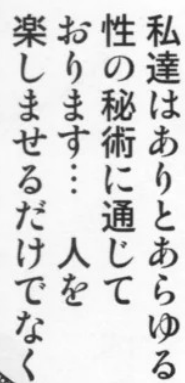 私達はありとあらゆる
性の秘術に通じて
おります… 人を
楽しませるだけでなく